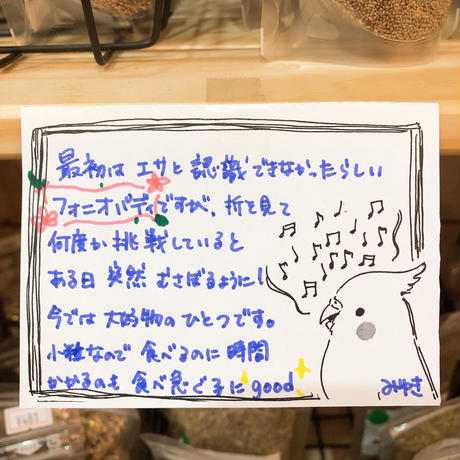 最初は エサと 認識できなかったらしい
フォニオパディですが、折を見て
何度か挑戦していると
ある日 突然 むさぼるように!
今では 大好物の ひとつです。
小粒なので 食べるのに 時間
かかるのも 食べ急ぐ子に good
みゆき